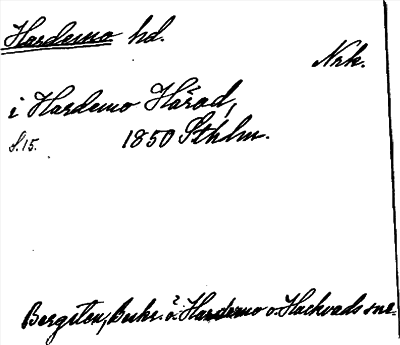 Hardemo hd.
Nrk.
i Hardemo Härad,
S. 15. 1850 Sthlm.
Bergsten, Beskr. ö. Hardemo o. Hackvads sne.